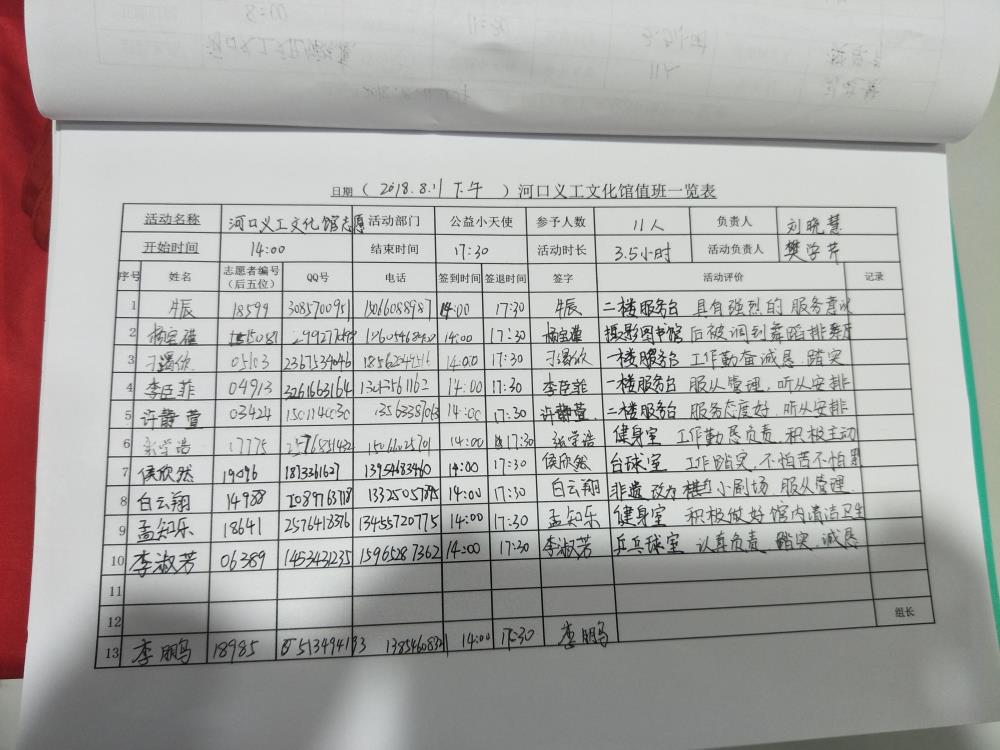 日期 ( 2018.8.11 下午 ) 河口义工文化馆值班一览表
活动名称 河口义工文化馆志愿 活动部门 公益小天使 参予人数 11人 负责人 刘晓慧
开始时间 14:00 结束时间 17:30 活动时长 3.5小时 活动负责人 樊学芹
序号 姓名 志愿者编号(后五位) QQ号 电话 签到时间 签退时间 签字 活动评价 记录
1 18599 3085700951 14:00 17:30 二楼服务台 具有强烈的服务意识
2 14:00 17:30 摄影图书馆 后被调到舞蹈排练厅
3 05103 14:00 17:30 一楼服务台 工作勤奋诚恳、踏实
4 李臣菲 04913 3261663164 14:00 17:30 李臣菲 一楼服务台 服从管理,听从安排
5 许静萱 03424 14:00 17:30 许静萱 二楼服务台 服务态度好,听从安排
6 17775 14:00 17:30 健身室 工作勤恳负责,积极主动
7 侯欣然 19096 1395483460 14:00 17:30 侯欣然 台球室 工作踏实,不怕苦不怕累
8 白云翔 14988 14:00 17:30 白云翔 非遗改为棋 小剧场 服从管理
9 孟知乐 18641 2576413376 13455720775 14:00 17:30 孟知乐 健身室 积极做好馆内清洁卫生
10 李淑芳 06389 1453431235 15965287362 14:00 17:30 李淑芳 乒乓球室 认真负责、踏实、诚恳
11
12 组长
13 李鹏鸟 18985 14:00 17:30 李鹏鸟